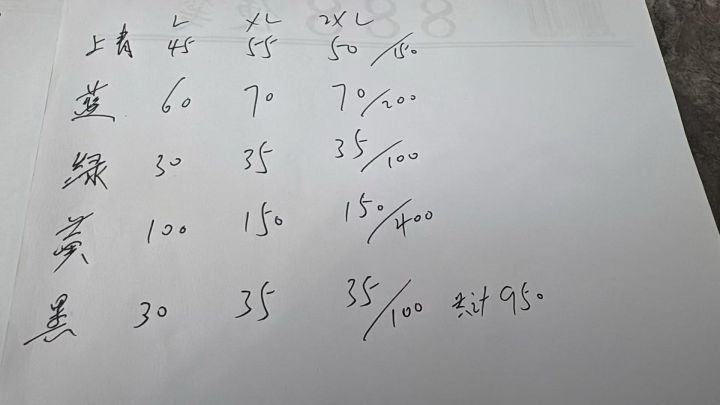 L XL 2XL
上青 45 55 50/150
蓝 60 70 70/200
绿 30 35 35/100
黄 100 150 150/400
黑 30 35 35/100 共计 950